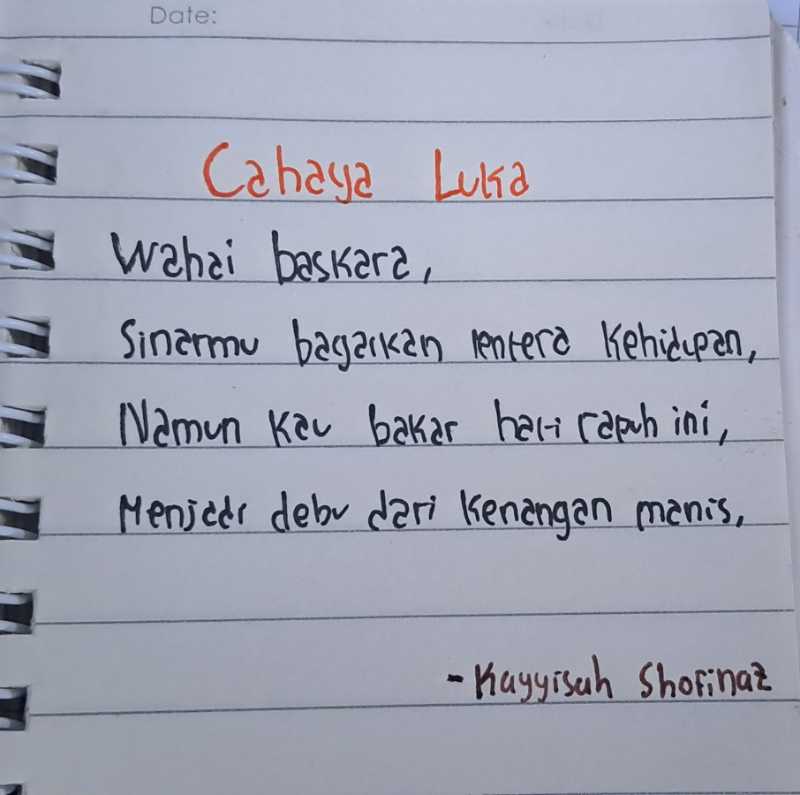 Date:
Cahaya Luka
Wahai baskara,
Sinarmu bagaikan lentera kehidupan,
Namun kau bakar hati rapuh ini,
Menjadi debu dari kenangan manis,
- Kayyisah Shofinaz